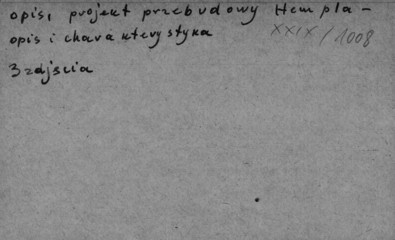 opis, projekt przebudowy Hempla -
opis i charakterystyka
XXIX/1008
3 zdjęcia